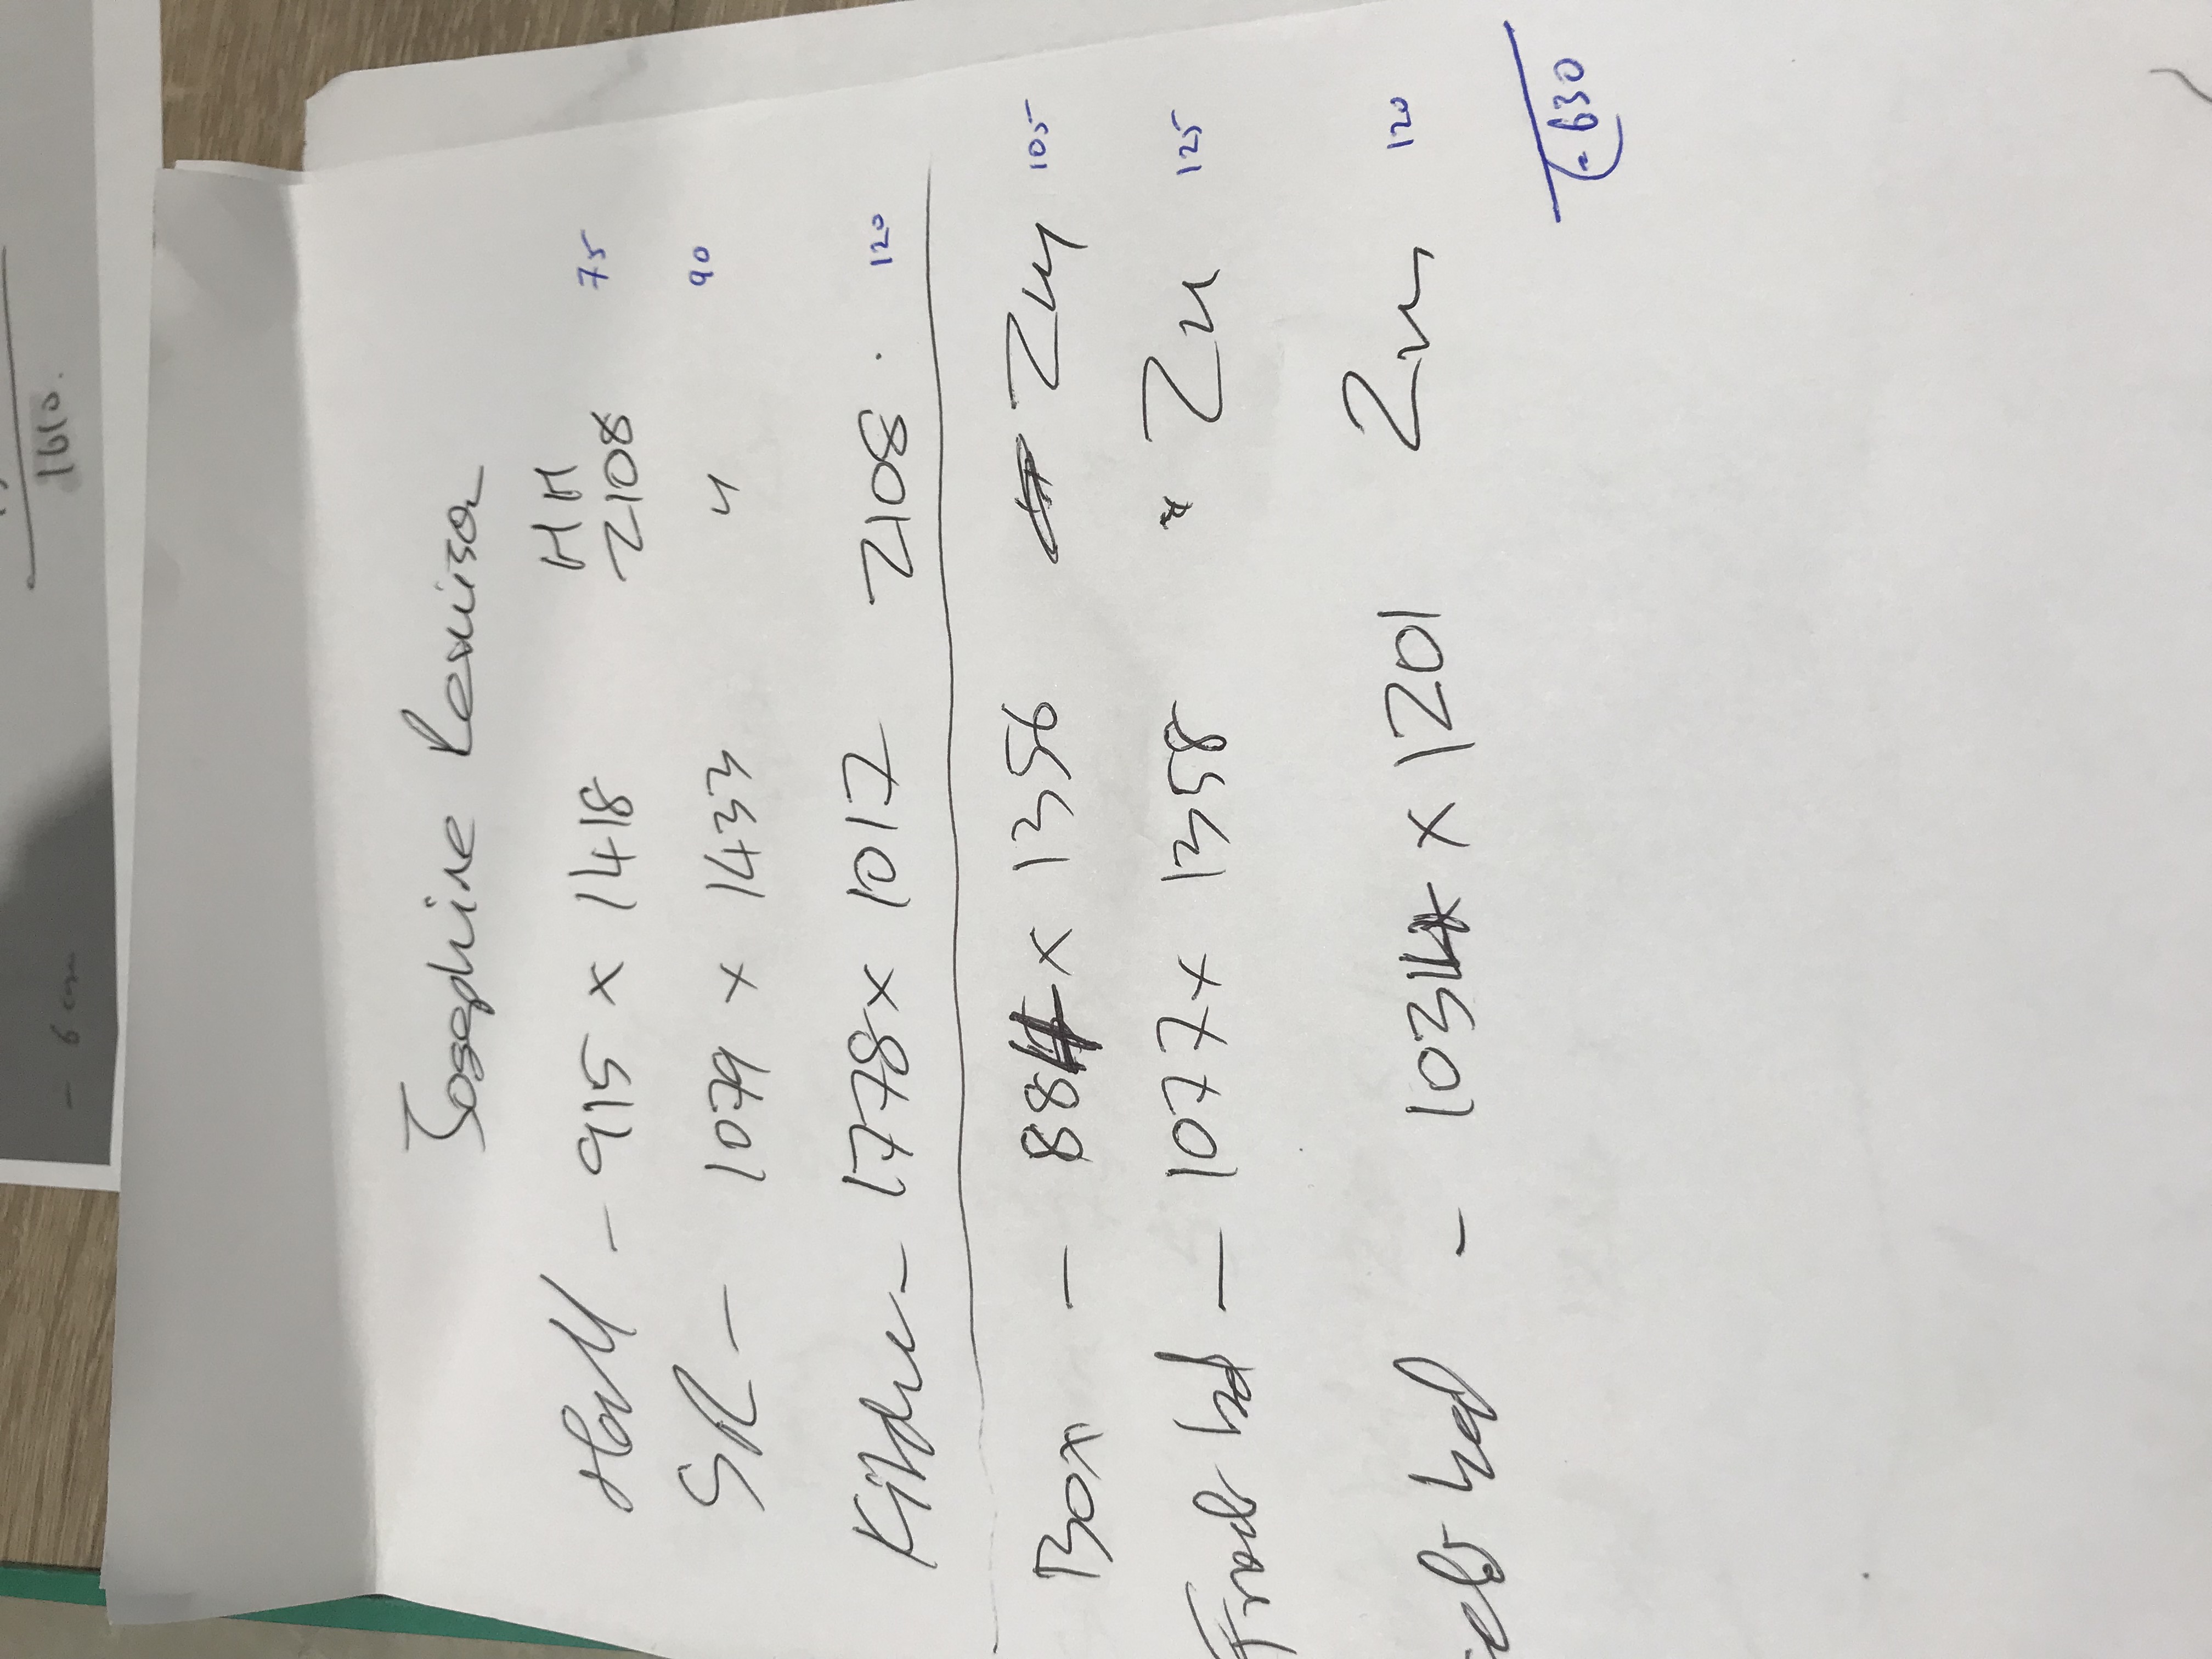 Josephine
HH
Hall - 915 x 1418 2108 75
SR - 1079 x 1433 " 90
Kitchen - 1778 x 1017 2108. 120
Box - 88 x 1356 2m 105
Front bed - 1077 x 1358 2m 125
bed - 103 x 1201 2m 120
- 630
1610.
- 6 cm